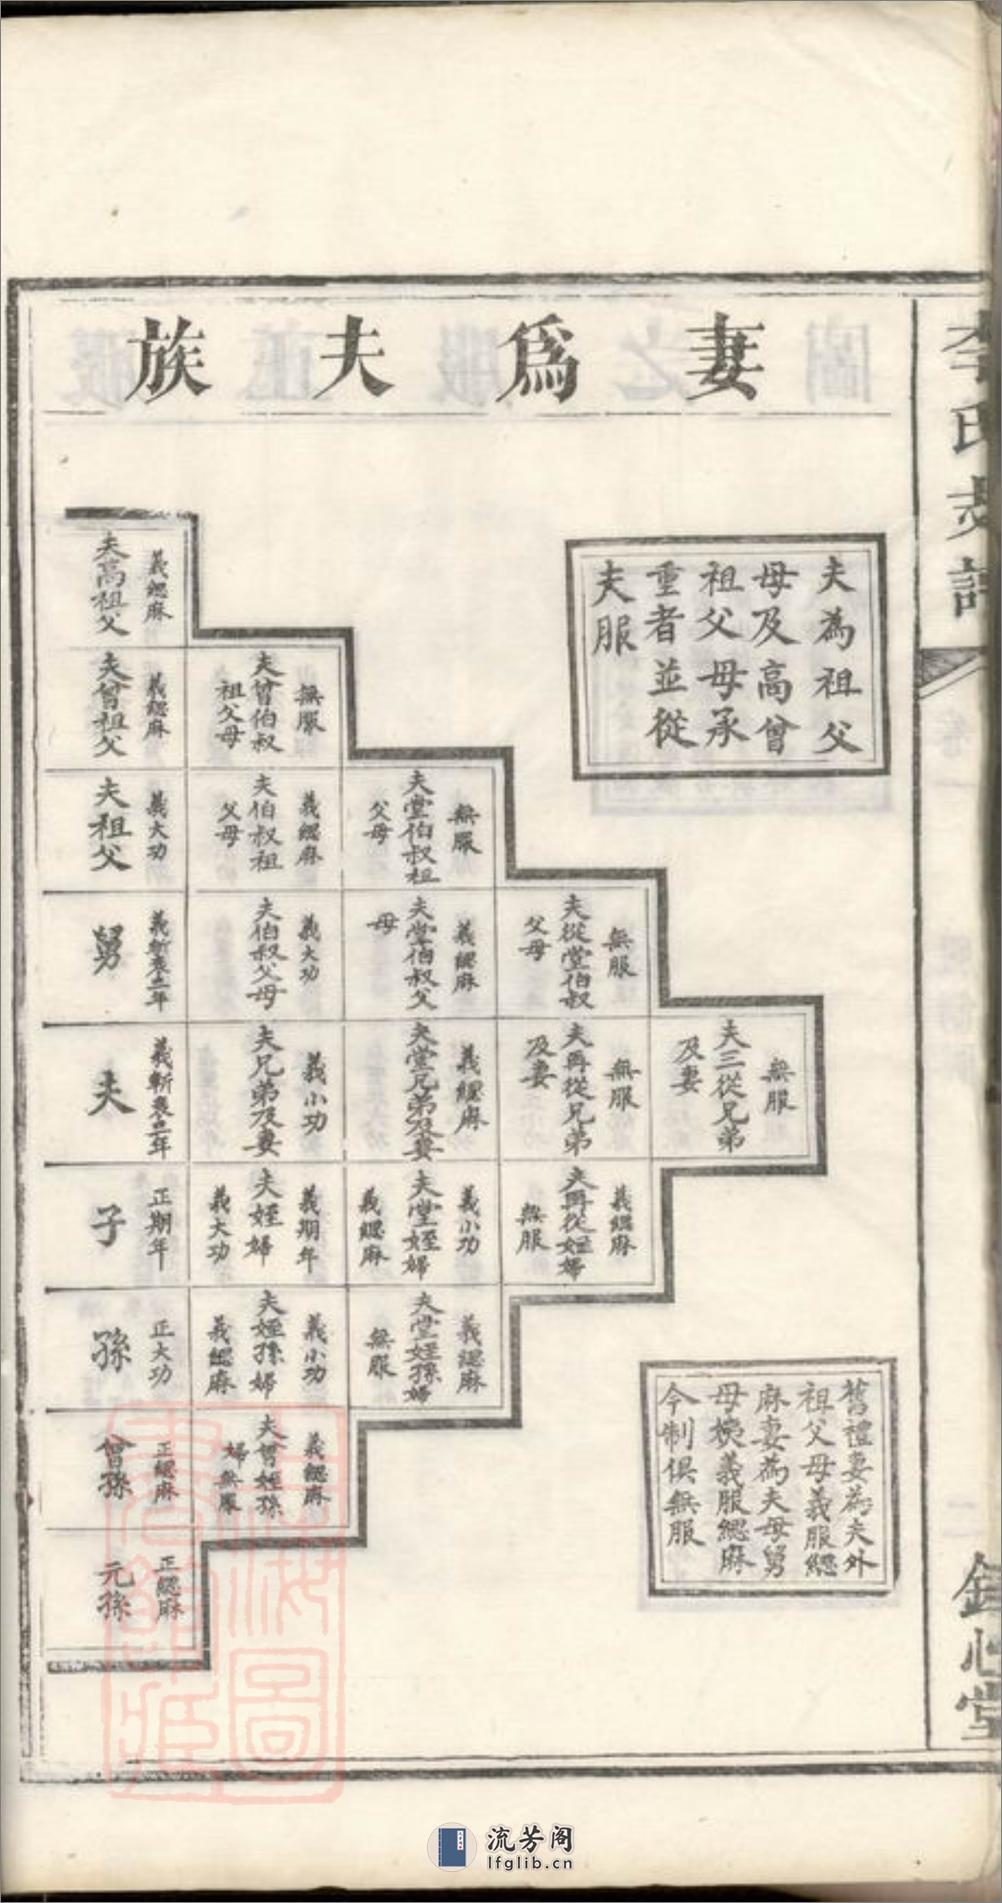 妻爲夫族
夫為祖父
母及高曾
祖父母承
重者並從
夫服
義緦麻
夫高祖父
無服
夫曾伯叔
祖父母
義緦麻
夫曾祖父
無服
夫堂伯叔祖
父母
義緦麻
夫伯叔祖
父母
義大功
夫祖父
無服
夫從堂伯叔
父母
義緦麻
夫堂伯叔父
母
義大功
夫伯叔父母
義斬衰三年
舅
無服
夫三從兄弟
及妻
無服
夫再從兄弟
及妻
義緦麻
夫堂兄弟及妻
義小功
夫兄弟及妻
義斬衰三年
夫
義緦麻
夫再從姪婦
無服
義小功
夫堂姪婦
義緦麻
義期年
夫姪婦
義大功
正期年
子
義緦麻
夫堂姪孫婦
無服
義小功
夫姪孫婦
義緦麻
正大功
孫
義緦麻
夫曾姪孫
婦無服
正緦麻
曾孫
正緦麻
元孫
舊禮妻為夫外
祖父母義服緦
麻妻為夫母舅
母姨義服緦麻
今制俱無服
李氏支譜
卷一
流芳阁
lfglib.cn